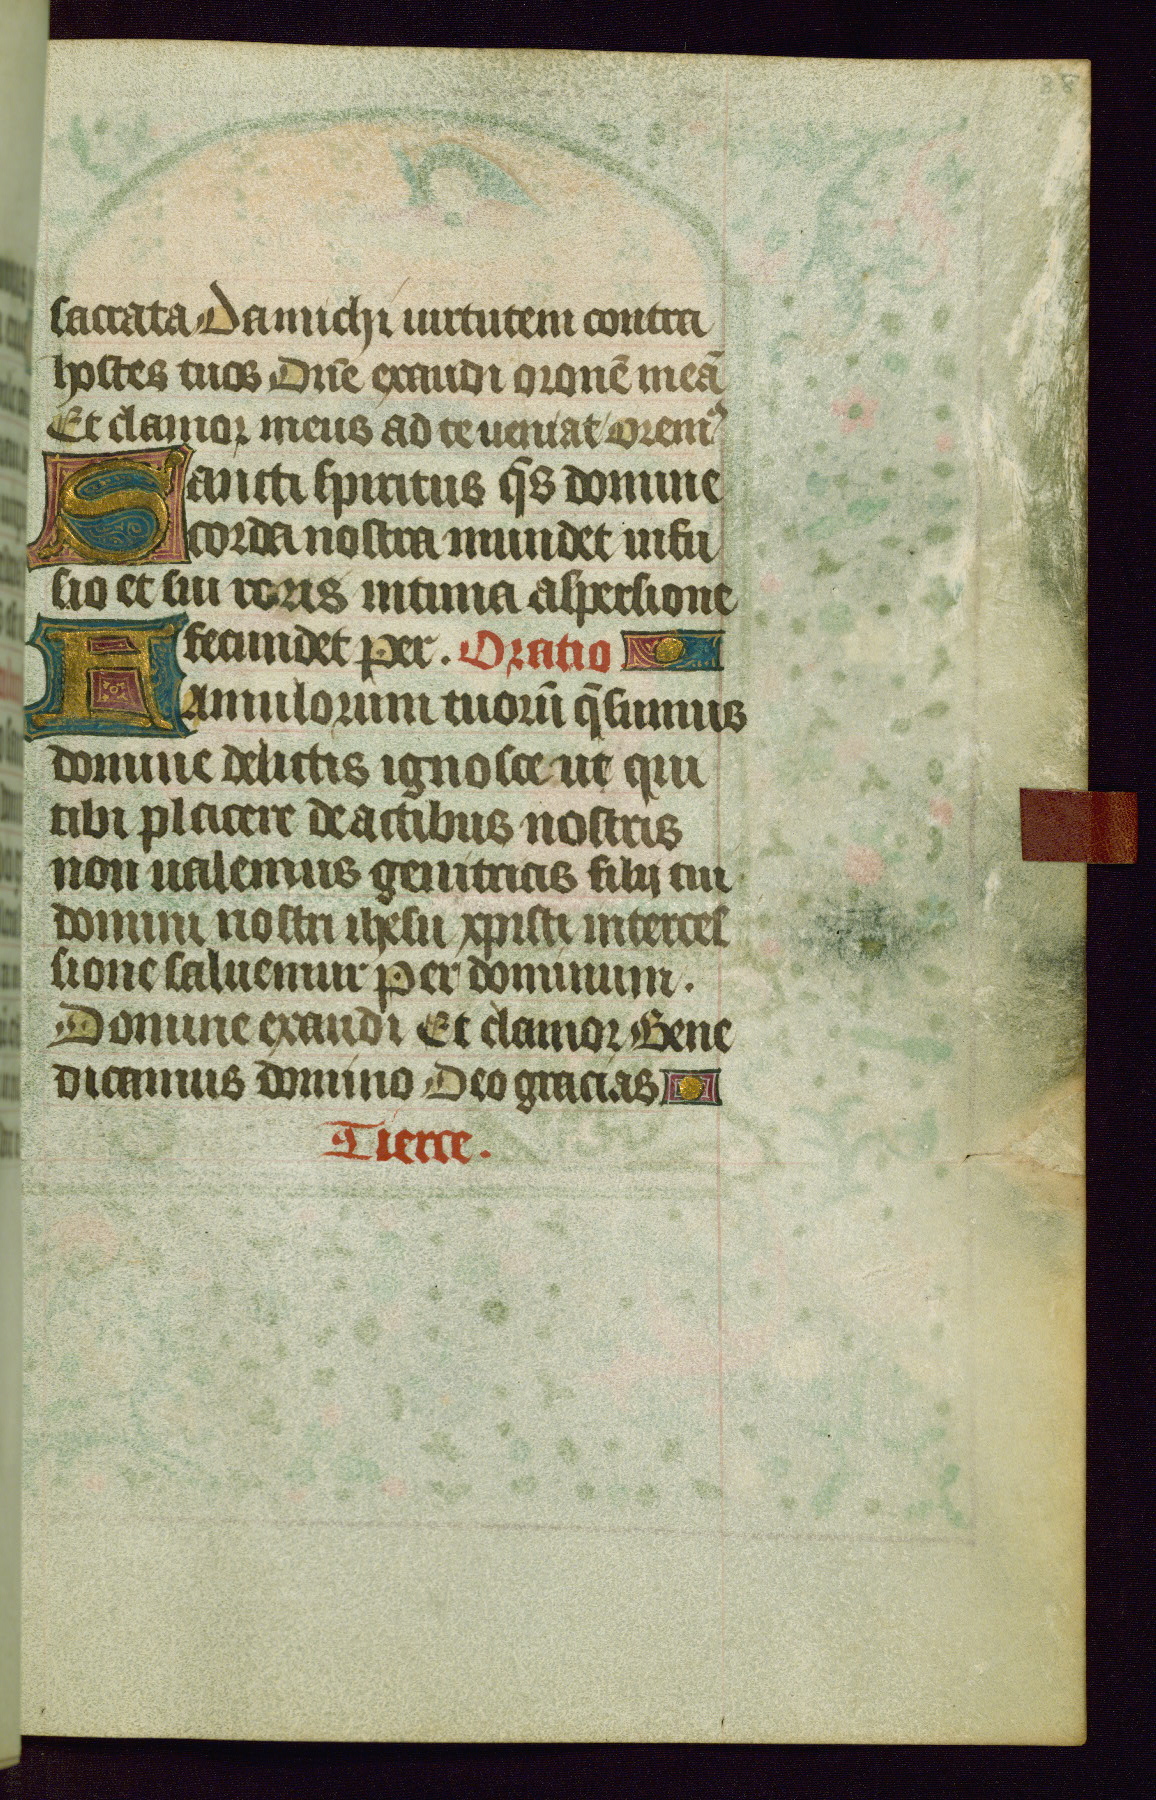 88
sacrata Da michi uirtutem contra
hostes tuos Dñe exaudi oronẽ meã
Et clamor meus ad te ueniat orem᷒
Sancti spiritus q̃s domine
corda nostra mundet infu
sio et sui roris intima aspersione
fecundet per. Oratio
Famulorum tuorũ q̃sumus
domine delictis ignosce ut qui
tibi placere de actibus nostris
non ualemus genitricis filij tui
domini nostri ihesu xpisti interces
sione saluemur Per dominum.
Domine exaudi Et clamor Bene
dicamus domino Deo gracias
Tierce.